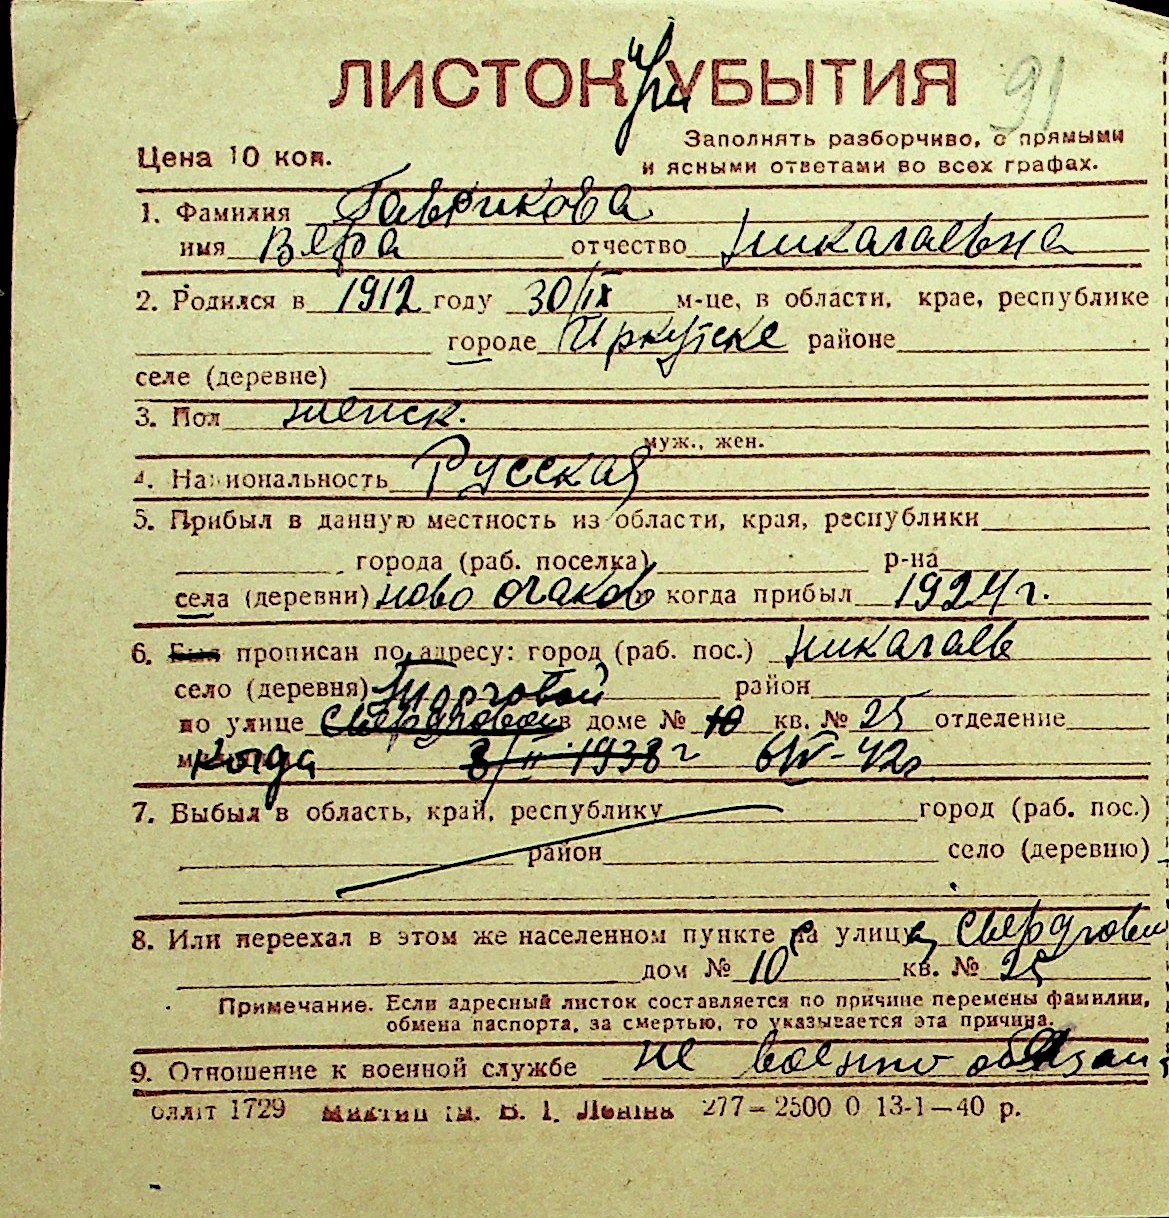 ЛИСТОК При УБЫТИЯ 91
Цена 10 коп.
Заполнять разборчиво, с прямыми
и ясными ответами во всех графах.
1. Фамилия Гаврикова
имя Вера отчество Никалаевна
2. Родился в 1912 году 30/IX м-це, в области, крае, республике
городе Иркутске районе
селе (деревне)
3. Пол женск.
муж., жен.
4. Национальность Русская
5. Прибыл в данную местность из области, края, республики
города (раб. поселка) р-на
села (деревни) ново Очаков и когда прибыл 1924 г.
6. Был прописан по адресу: город (раб. пос.) Никалаев
село (деревня) Торговой район
по улице Свердловой в доме № 10 кв. № 25 отделение
Когда 3/II 1938 г 6/IV-42г
7. Выбыл в область, край, республику город (раб. пос.)
район село (деревню)
8. Или переехал в этом же населенном пункте с улицы Свердловой
дом № 10 кв. № 25
Примечание. Если адресный листок составляется по причине перемены фамилии,
обмена паспорта, за смертью, то указывается эта причина.
9. Отношение к военной службе не военно обязан
1729 ім. В. І. Леніна 277—2500 0 13-1—40 р.